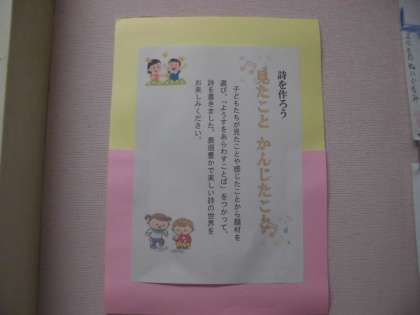 詩を作ろう
見たこと かんじたこと
子どもたちが見たことや感じたことから題材を
選び、「ようすをあらわすことば」をつかって、
詩を書きました。表現豊かで楽しい詩の世界を
お楽しみください。